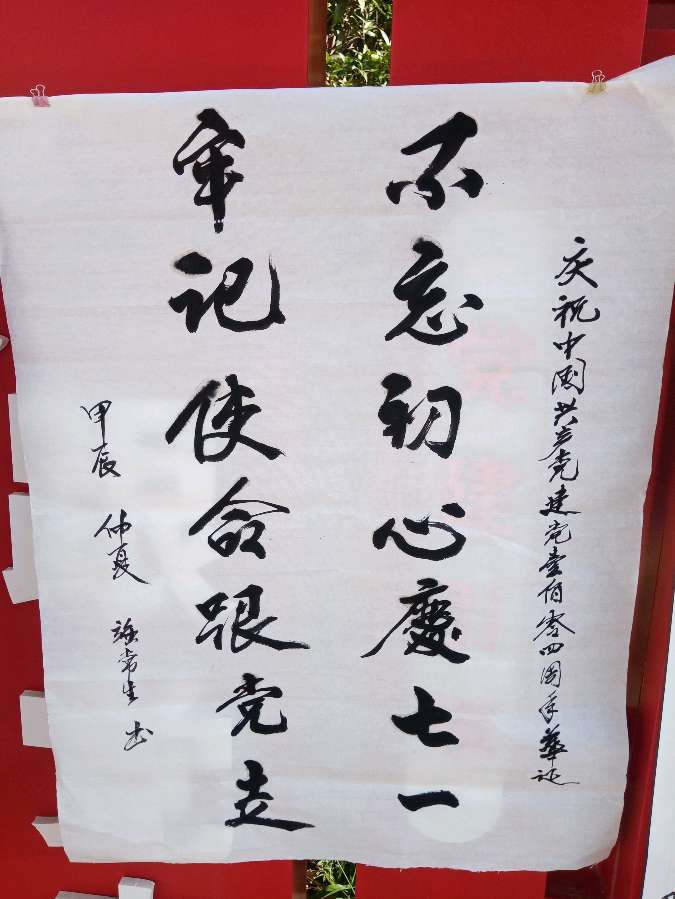 庆祝中国共产党建党壹佰零四周年華诞
不忘初心慶七一
牢记使命跟党走
甲辰 仲夏 常生 书